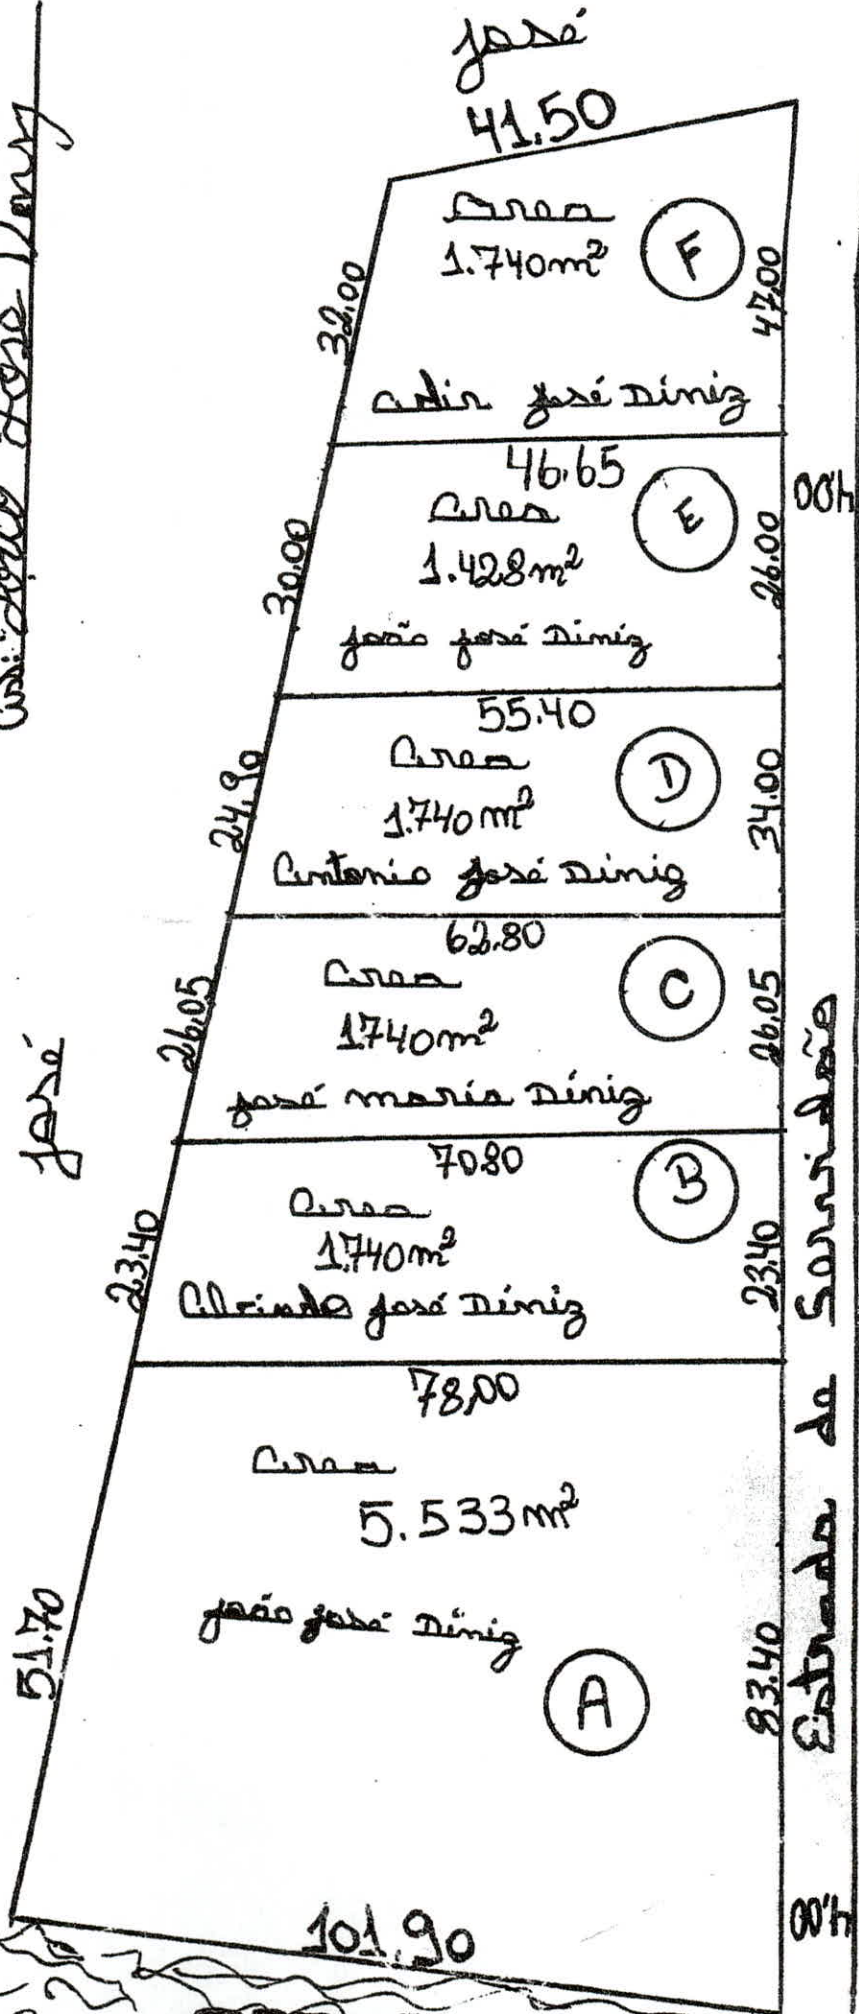 josé
41.50
Area
1.740m²
F
32.00
47.00
Adir José Diniz
46.65
Area
E
1.428m²
30.00
26.00
4,00
joão josé Diniz
55.40
Area
D
1.740m²
24.90
34.00
Antonio José Diniz
62.80
Area
C
1740m²
26.05
26.05
josé maria Diniz
josé
7080
B
Area
1.740m²
23.40
23.40
José Diniz
78,00
Area
5.533m²
joão josé Diniz
A
51.70
83.40
101.90
4,00
Estrada de Servidão
Ass: